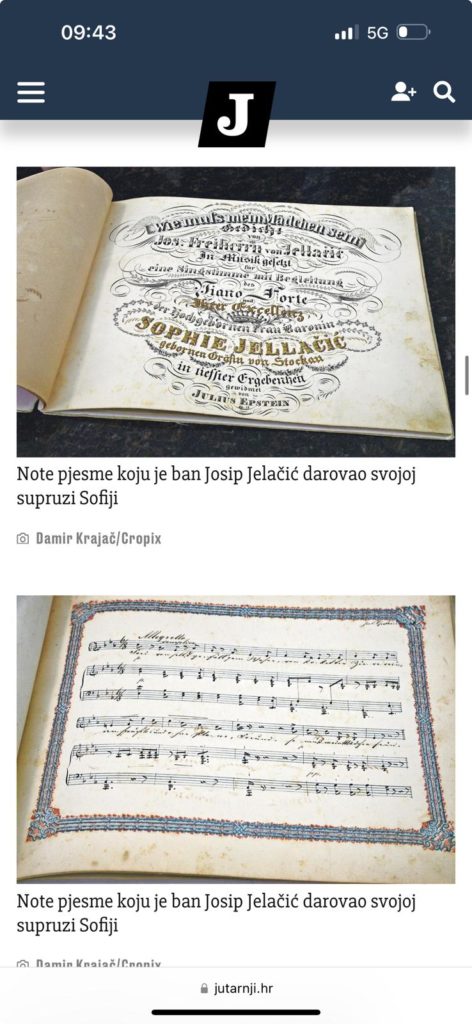 09:43
5G
J
wie muß mein Mädchen sein
Gedicht
von
Jos: Freiherrn von Jellačić
In Musik gesetzt
für
eine Singstimme mit Begleitung
des
Piano-Forte
Ihrer Excellenz
der Hochgebornen Frau Baronin
SOPHIE JELLAČIĆ
gebornen Gräfin von Stockau
in tiefster Ergebenheit
gewidmet
von
JULIUS EPSTEIN
Note pjesme koju je ban Josip Jelačić darovao svojoj
supruzi Sofiji
Damir Krajač/Cropix
Allegretto
Note pjesme koju je ban Josip Jelačić darovao svojoj
supruzi Sofiji
Damir Krajač/Cropix
jutarnji.hr